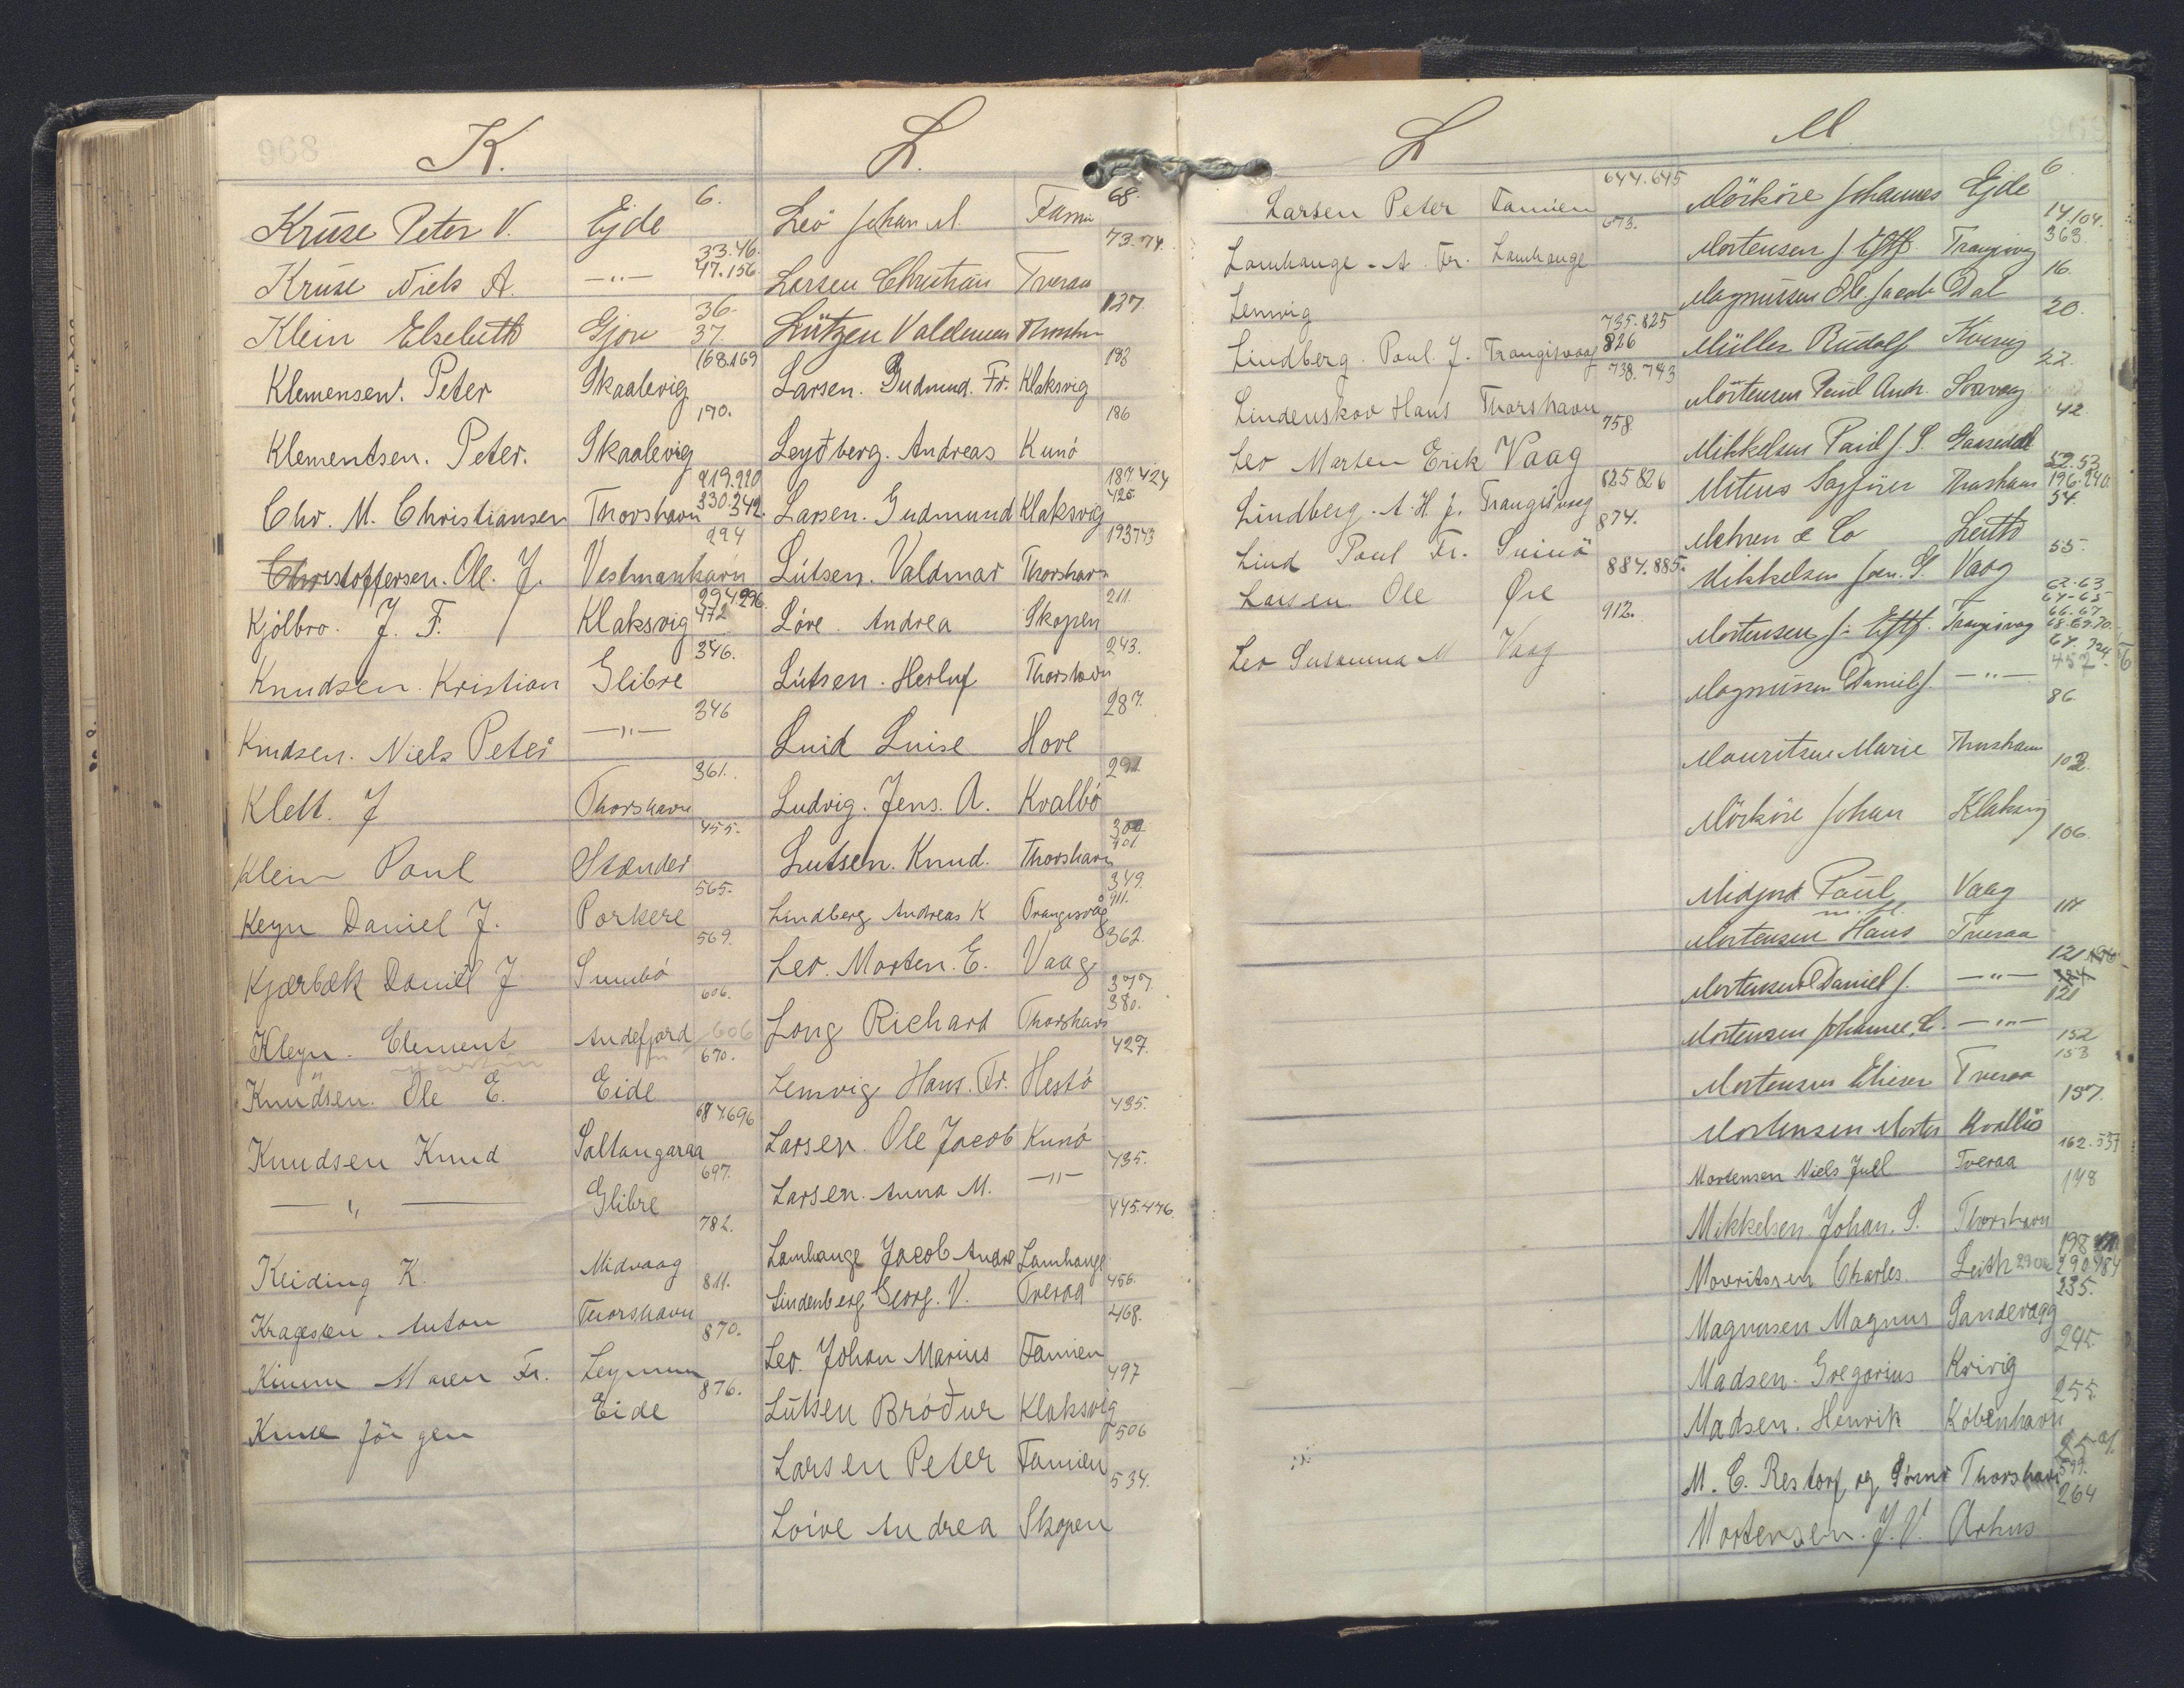 968
K.
Kruse Peter V. Ejde 6.
Kruse Niels A. -"- 33.46. 47.156.
Klein Elsebeth Gjov 36. 37
Klemensen. Peter Skaalevig 168.169
Klementsen. Peter. Skaalevig 170.
Chr. M. Christiansen Thorshavn 219.220 330.342.
Christoffersen. Ole. J. Vestmanhavn 224
Kjölbro. J. F. Klaksvig 294.296. 472
Knudsen. Kristian Glibre 346.
Knudsen. Niels Peter -"- 346
Klett. J Thorshavn 361.
Klein Poul Stender 455.
Keyn Daniel J. Porkere 565.
Kjærbæk Daniel J Sumbö 569.
Kleyn. Clement Andefjord 606. 606
Knudsen. Ole E. Eide 670.
Knudsen Knud Saltangaraa 687.696
-"- Glibre 697.
Keiding K. Midvaag 782.
Kragesteen. Anton Thorshavn 811.
Kimm Maren Fr. Leynum 870.
Kruse Jörgen Eide 876.
L.
Leo Johan M. Famien 68.
Larsen Christian Tveraa 73.74.
Lützen Valdemar Thorshavn 127.
Larsen. Gudmund. Fr. Klaksvig 183
Leyðberg. Andreas Kunö 186
Larsen. Gudmund Klaksvig 187.424 425
Lützen. Valdmar Thorshavn 193743
Löve. Andrea Skopen 211.
Lützen. Herluf Thorshavn 243.
Luid Luise Hove 287.
Ludvig. Jens. A. Kvalbö 291
Lutsen. Knud. Thorshavn 701
Lindberg Andreas K Trangisvåg 349. 911.
Leo. Morten. E. Vaag 362.
Long Richard Thorshavn 377. 380.
Lemvig Hans. Fr. Hestö 427.
Larsen. Ole Jacob Kunö 435.
Larsen. Anna M. -"- 435.
Lamhauge Jacob Andre Lamhauge 445.446.
Lindenberg Georg. V. Tveraa 456.
Leo. Johan Marius Famien 468.
Lützen Bróður Klaksvig 497
Larsen Peter Famien 506
Loive Andrea Skopen 534.
L
Larsen Peter Famien 644.645
Lamhauge. A. Fr. Lamhauge 673.
Lemvig
Lindberg. Poul. J. Trangisvaag 735.825 826
Lindenskov Hans Thorshavn 738.743
Leo Morten Erik Vaag 758
Lindberg. A. H. J. Trangisvaag 825 826
Lind Poul Fr. Svinö 874.
Larsen Ole Øre 884.885.
Leo Susanna M Vaag 912.
969
M
Mörköre Johannes Ejde 6
Mortensen J Eftf. Trangisvaag 14.104. 363.
Magnussen Ole Jacob Dal 16.
Müller Rudolf Kvivig 20.
Mortensen Poul Andr. Sorvaag 22.
Mikkelsen Paul J. S. Gaasedal 42
Mitens Sagfører Thorshavn 52.53 196.240.
Mehren & Co Leith 54.
Mikkelsen Joen. S. Vaag 55.
Mortensen J: Eftf. Trangisvaag 62.63 64-65 66.67 68.69.70.
Magnussen Daniel J. -"- 452.
Mouritsen Marie Thorshavn 86.
Mörköre Johan Klaksvig 102
Midjord Paul Vaag 106.
Mortensen Hans Tveraa 117
Mortensen Daniel J. -"- 121
Mortensen Johannes C. -"- 121
Mortensen Elieser Tveraa 152 153
Mortensen Morten Kvalbö 157.
Mortensen Niels Juel Tveraa 162.537
Mikkelsen. Johan. S. Thorshavn 178
Mouritssen Charles. Leith 198 290.984
Magnusen Magnus Sandevagg 235.
Madsen. Gregorius Kvivig 245.
Madsen. Henrik Köbenhavn 255.
M. C. Restorf og Sönner Thorshavn
Mortensen. J. V. Arhus 264